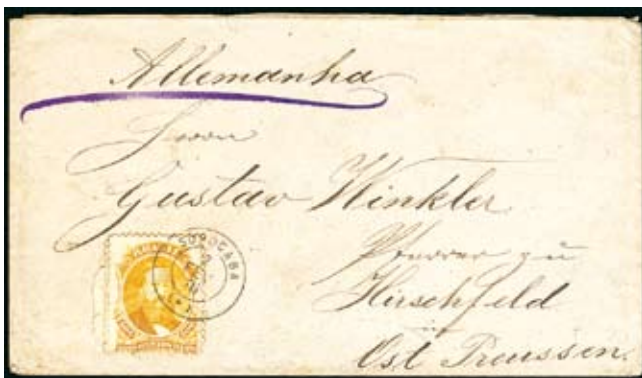 Allemanha
Herrn
Gustav Winkler
Pfarrer zu
Hirschfeld
in
Ost Preussen.
SOROCABA